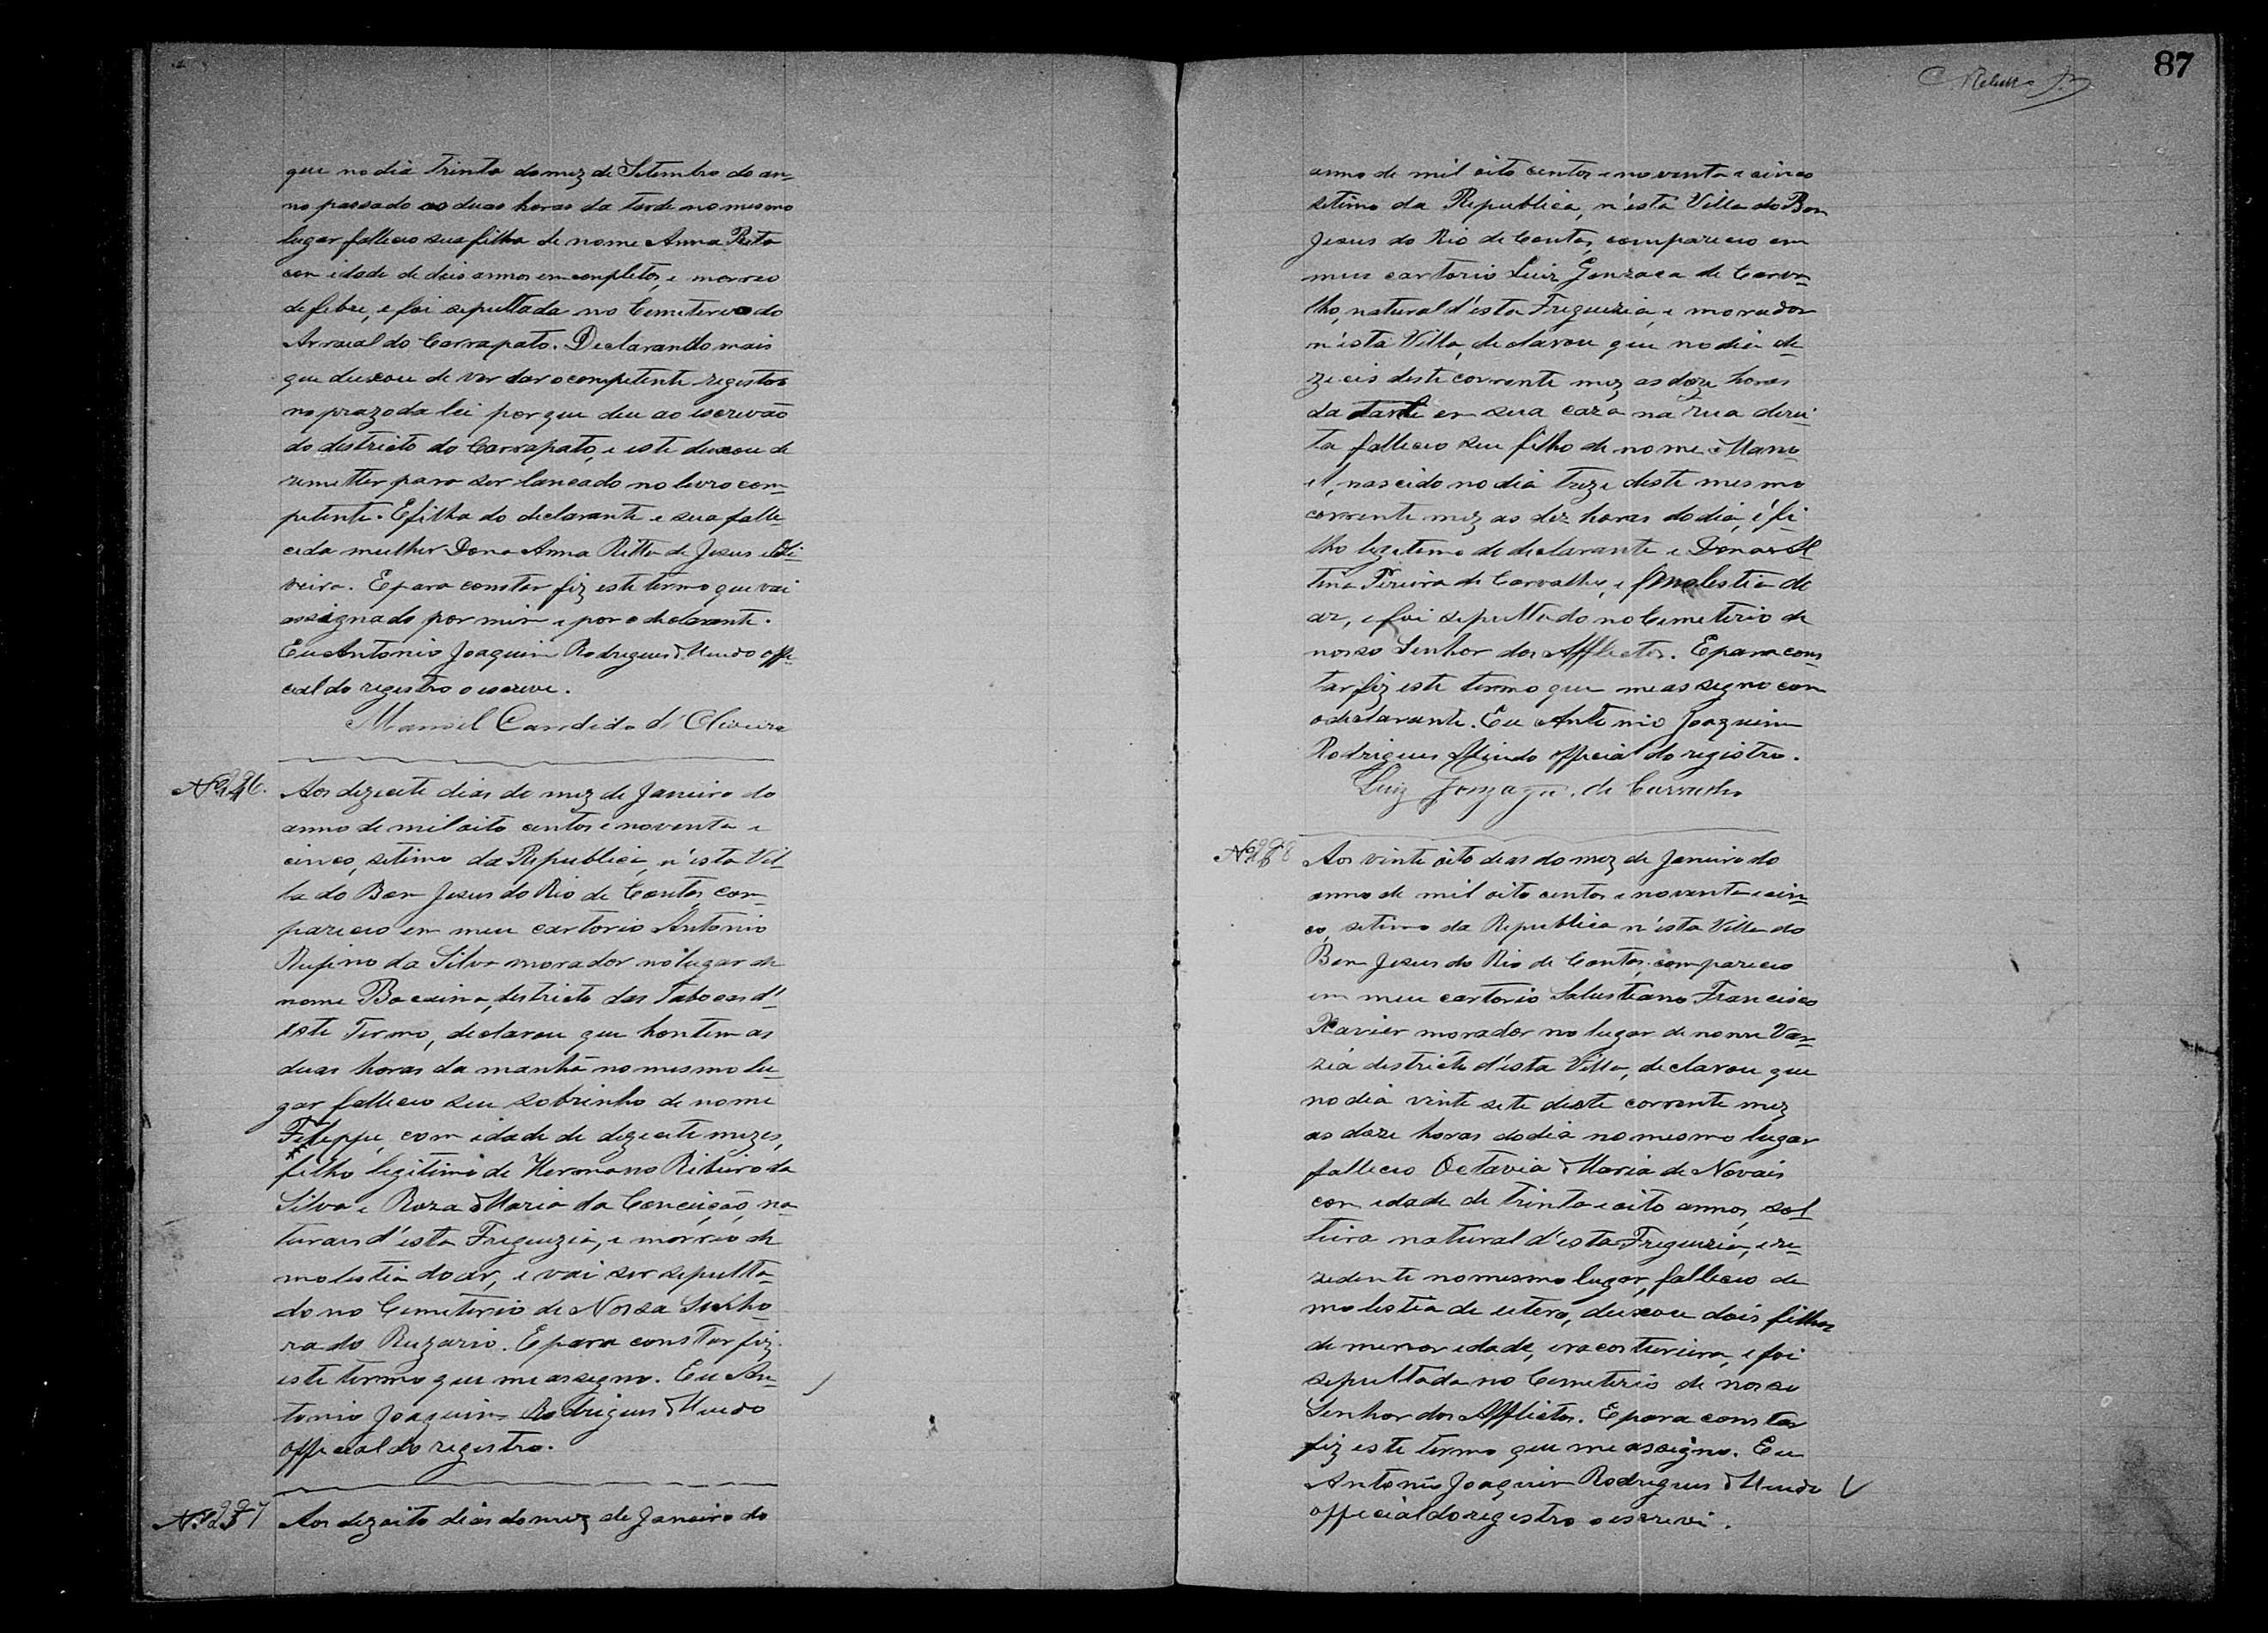 87
que no dia trinta do mez de Setembro do an-
no passado as duas horas da tarde no mesmo
lugar falleceo sua filha de nome Anna Rita
com idade de dois annos emcompletos, e morreo
de febre, e foi sepultada no Cemeterio do
Arraial do Carrapato. Declarando mais
que deixou de vir dar o competente registro
no prazo da lei por que deu ao escrevão
do destricto do Carrapato, e este deixou de
remetter para ser lancado no levro com-
petente. E filha do declarante e sua falle-
cida mulher Dona Anna Ritta de Jesus e Oli-
veira. E para constar fiz este termo que vai
assignado por mim e por o declarante.
Eu Antonio Joaquim Rodrigues offi-
cial do registro o escrevi.
Manoel Candido d'Oliveira
Aos dezecete dias do mez de Janeiro do
anno de mil oito centos e noventa e
cinco, setimo da Republica, n'esta Vil-
la do Bom Jesus do Rio de Contas, com-
pareceo em meu cartorio Antonio
Rufino da Silva morador no lugar de
nome Bocaina, destricto das Tabocas d'
este Termo, declarou que hontem as
duas horas da manhã no mesmo lu-
gar falleceo seu sobrinho de nome
Feleppe, com idade de dezecete mezes,
filho legitimo de Hermano Ribeiro da
Silva e Roza Maria da Conceição, na-
turaes d'esta Freguezia, e morreo de
molestia do ar, e vai ser sepulta-
do no Cemeterio de Nossa Senho-
ra do Ruzario. E para constar fiz
este termo que me assegno. Eu An-
tonio Joaquim Rodrigues
official do registro.
Aos dezoito dias do mez de Janeiro do
anno de mil oito centos e noventa e cinco
setimo da Republica, n'esta Villa do Bom
Jesus do Rio de Contas, compareceo em
meu cartorio Luiz Gonzaga de Carva-
lho, natural d'esta Freguezia, e morador
n'esta Villa, declarou que no dia de-
zeceis deste corrente mez as doze horas
da tarde em sua caza na rua derei-
ta falleceo seu filho de nome Mano-
el, nascido no dia treze deste mesmo
corrente mez as dez horas do dia, é fi-
lho legetemo do declarante e Dona Al-
tina Pereira de Carvalho, e molestia de
ar, e foi sepultado no Cemeterio de
nosso Senhor dos Afflectos. E para cons-
tar fiz este termo que me assegno com
o declarante. Eu Antonio Joaquim
Rodrigues official do registro.
Luiz Gonzaga de Carvalho
Aos vinte oito dias do mez de Janeiro do
anno de mil oito centos e noventa e cin-
co, setimo da Republica n'esta Villa do
Bom Jesus do Rio de Contas, compareceo
em meu cartorio Salustiano Francisco
Xavier morador no lugar de nome Var-
zea destricto d'esta Villa, declarou que
no dia vinte sete deste corrente mez
as doze horas do dia no mesmo lugar
falleceo Octavia Maria de Novais
com idade de trinta e oito annos, sol-
teira natural d'esta Freguezia, e re-
zedente no mesmo lugar, falleceo de
molestia de utero, deixou dois filhos
de menor edade, era costureira, e foi
sepultada no Cemeterio de nosso
Senhor dos Afflictos. E para constar
fiz este termo que me assigno. Eu
Antonio Joaquim Rodrigues
official do registro o escrevi.